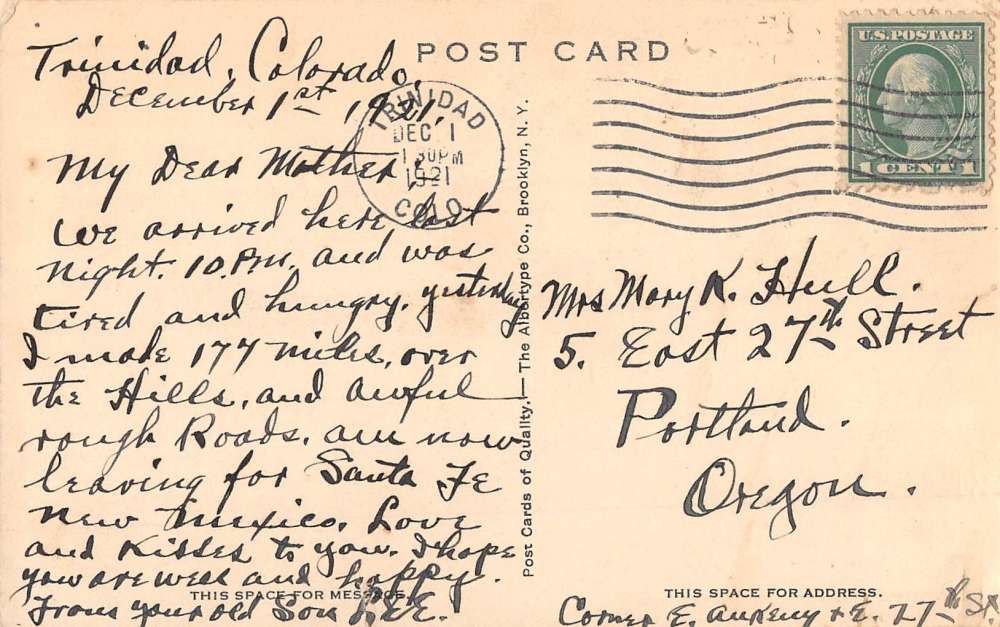 POST CARD
Trinidad, Colorado,
December 1st 1921,
My Dear Mother,
We arrived here last
night. 10. P.m. and was
tired and hungry, yesterday
I made 177 miles, over
the Hills, and awful
rough Roads. am now
leaving for Santa Fe
New Mexico. Love
and Kisses to you. I hope
you are well and happy.
From your old Son LEE.
THIS SPACE FOR MESSAGE.
Post Cards of Quality.—The Albertype Co., Brooklyn, N. Y.
TRINIDAD
DEC 1
1 30 PM
1921
COLO
U.S. POSTAGE
1 CENT 1
Mrs Mary K. Hull.
5. East 27th Street
Portland.
Oregon.
THIS SPACE FOR ADDRESS.
Corner E. Ankeny & E. 27th St.